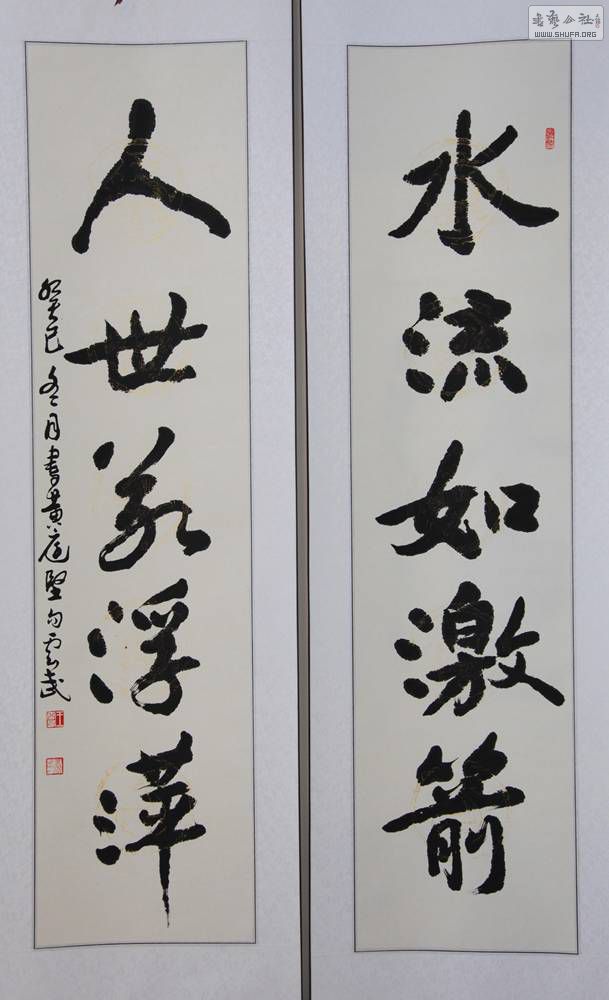 水流如激箭
人世若浮萍
癸巳冬月書黄庭堅句雲武
書藝公社
WWW.SHUFA.ORG